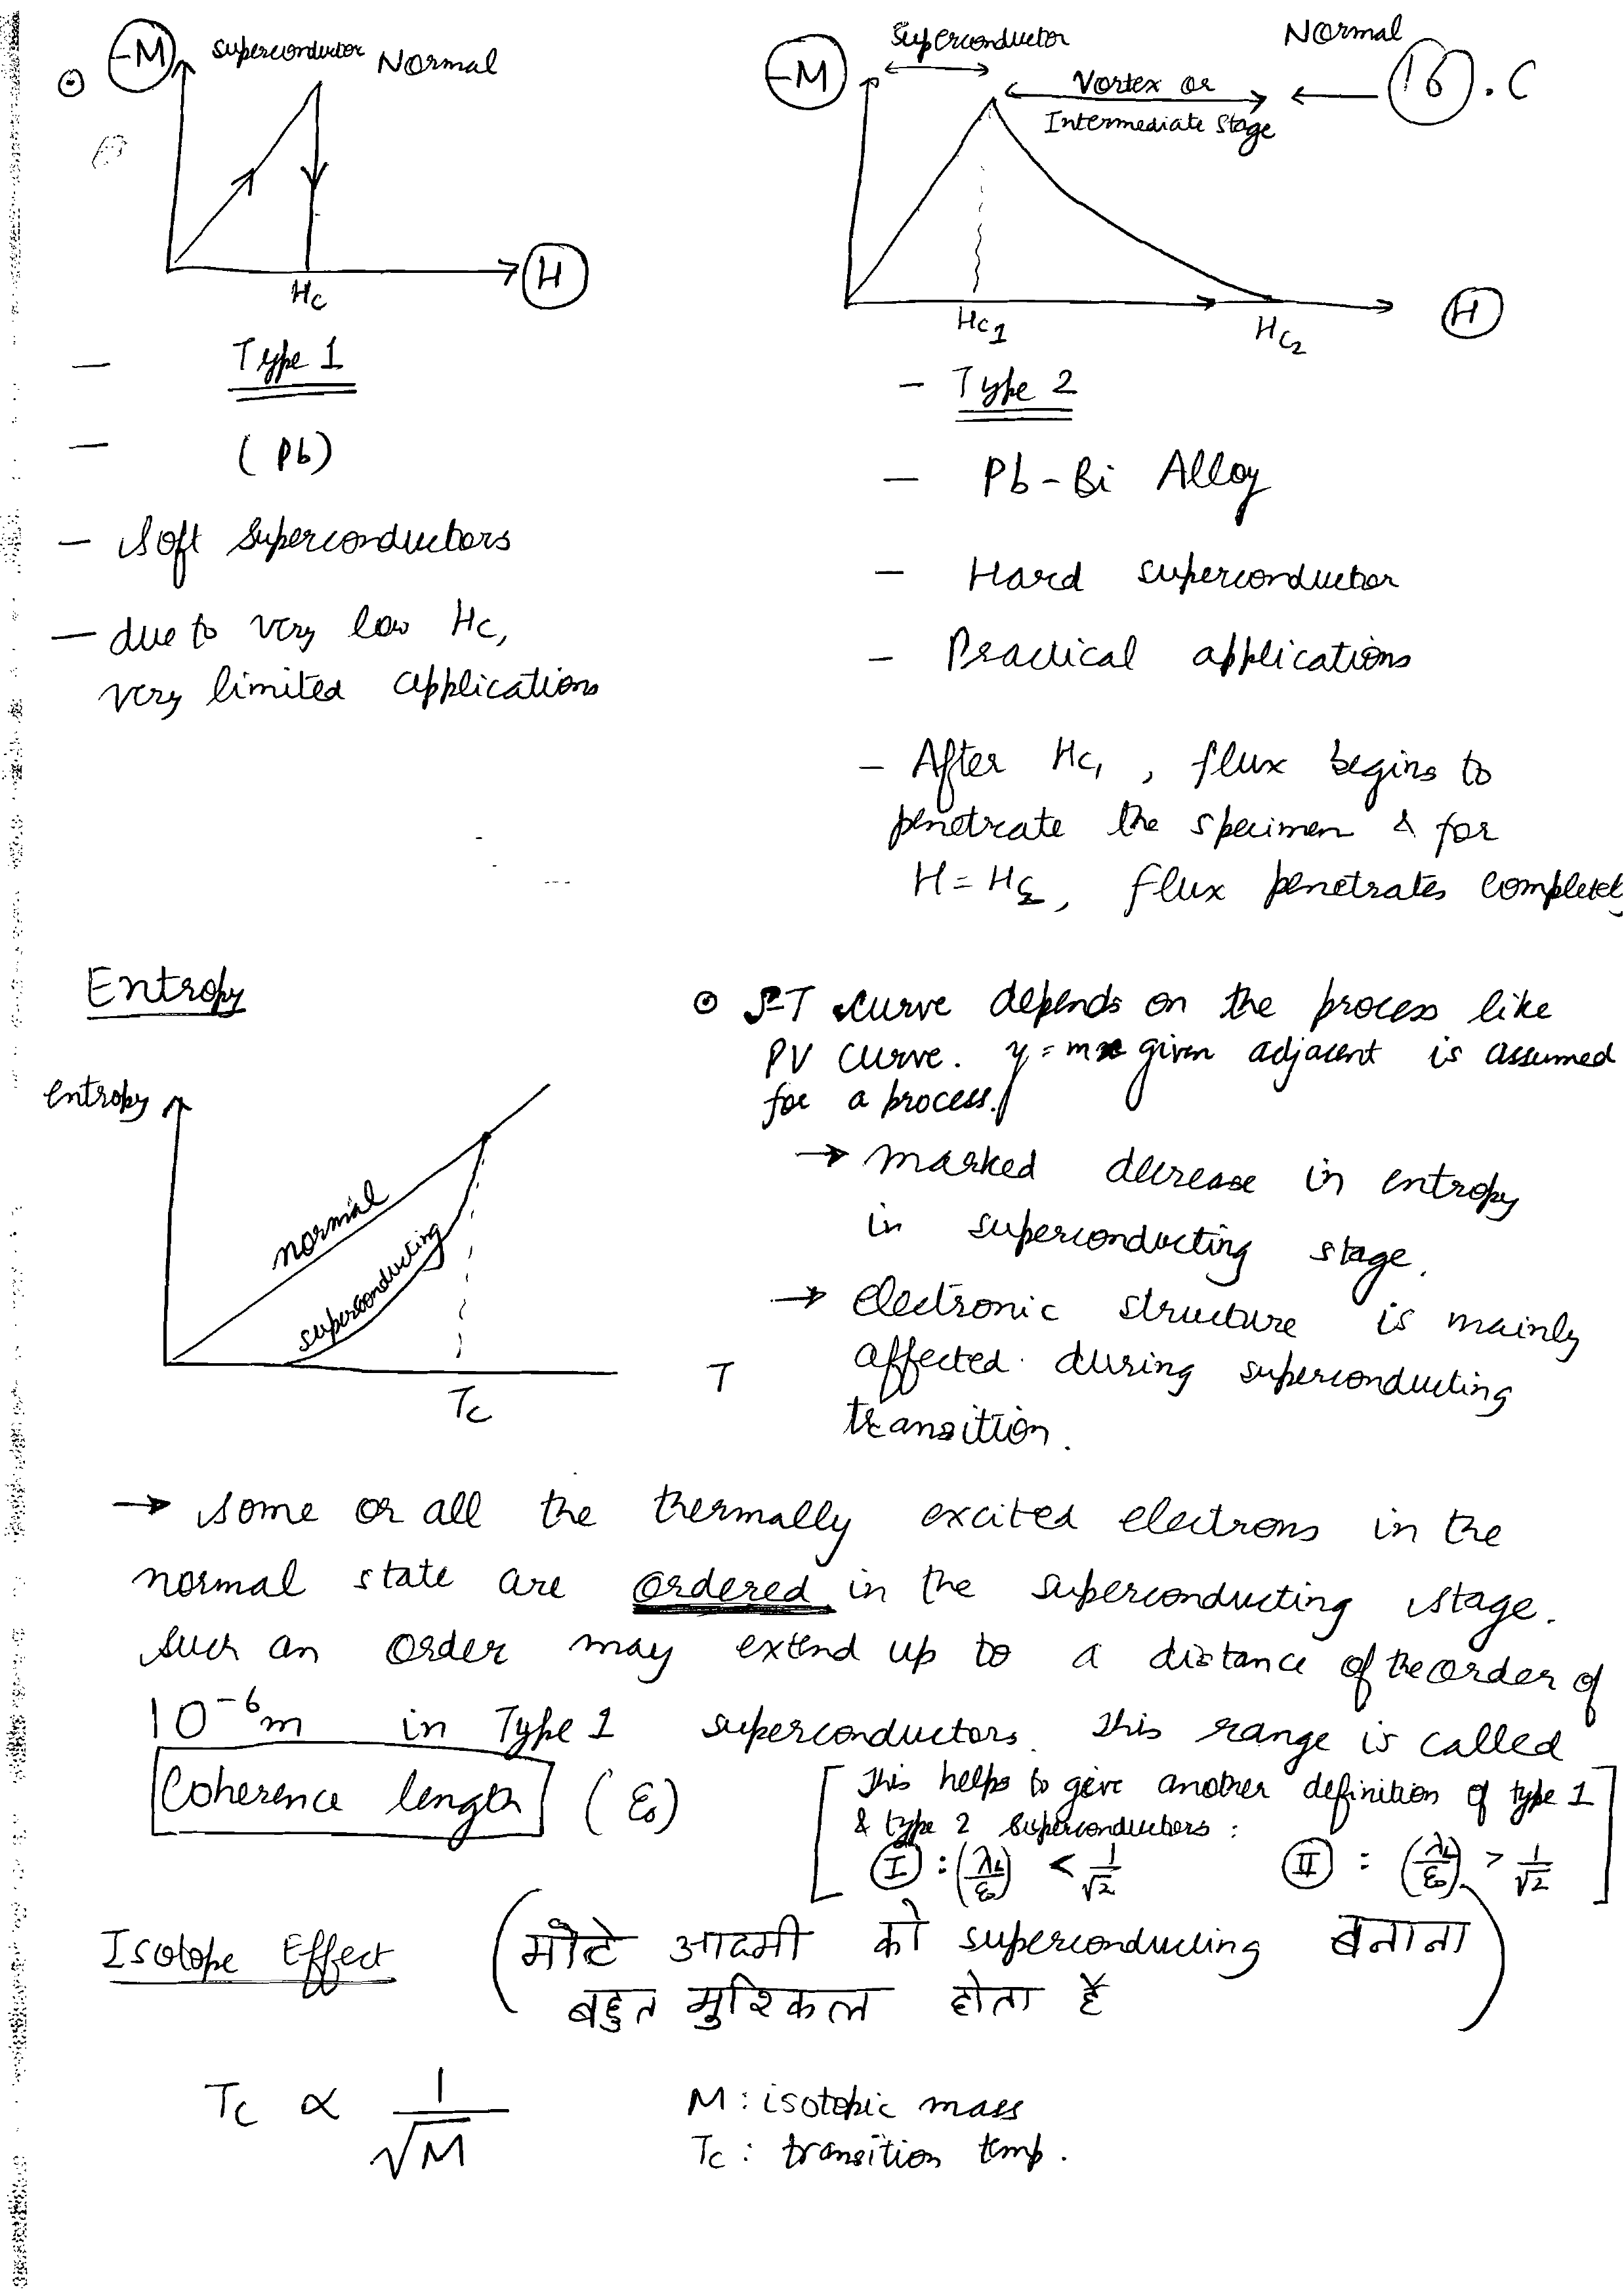 -M
Superconductor Normal
H
Hc
Type 1
(Pb)
- Soft Superconductors
- due to very low Hc,
very limited applications
16.C
-M
Superconductor
Normal
Vortex or
Intermediate Stage
H
Hc1
Hc2
- Type 2
- Pb-Bi Alloy
- Hard superconductor
- Practical applications
- After Hc1, flux begins to
penetrate the specimen & for
H = Hc2, flux penetrates completely
Entropy
entropy
normal
superconducting
Tc
T
S-T curve depends on the process like
PV curve. y = mx given adjacent is assumed
for a process.
→ marked decrease in entropy
in superconducting stage.
→ electronic structure is mainly
affected during superconducting
transition.
→ some or all the thermally excited electrons in the
normal state are ordered in the superconducting stage.
Such an order may extend up to a distance of the order of
10⁻⁶m in Type 1 superconductors. This range is called
Coherence length (ε₀)
[This helps to give another definition of type 1
& type 2 superconductors:
I : (λL/ε₀) < 1/√2 II : (λL/ε₀) > 1/√2]
Isotope Effect (मोटे आदमी को superconducting बनाना
बहुत मुश्किल होता है)
Tc ∝ 1/√M
M : isotopic mass
Tc : transition temp.